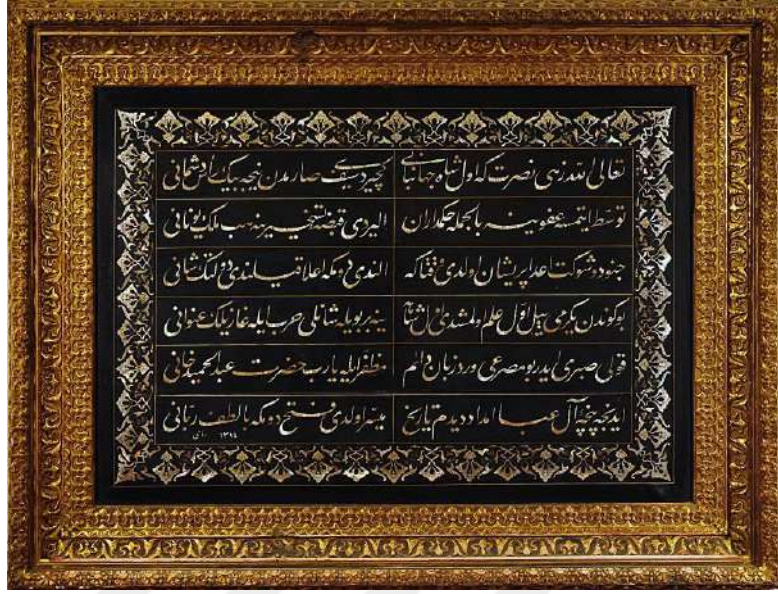 تعالی الله زهی نصرت که اول شاه جهانبانی کچیردی سیف صارمدن نیجه بیك دشمانی
توسط ایتمسه عفوینه بالجمله حکمداران الیردی قبضۀ تسخیرینه هپ ملك یونانی
جنود و شوکت اعدا پریشان اولدی وقتا که الندی دومکه اعلا قیلندی دولتك شانی
بو کوندن یکرمی ییل اول علم اولمشدی ینه بر بویله شانلی حرب ایله غازیلك عنوانی
قولی صبری ایدر بو مصرعی ورد زبان دائم مظفر ایله یا رب حضرت عبدالحمید خانی
ایدنجه پنجۀ آل عبا امداد دیدم تاریخ میسر اولدی فتح دومکه با لطف ربانی
۱۳۱٤